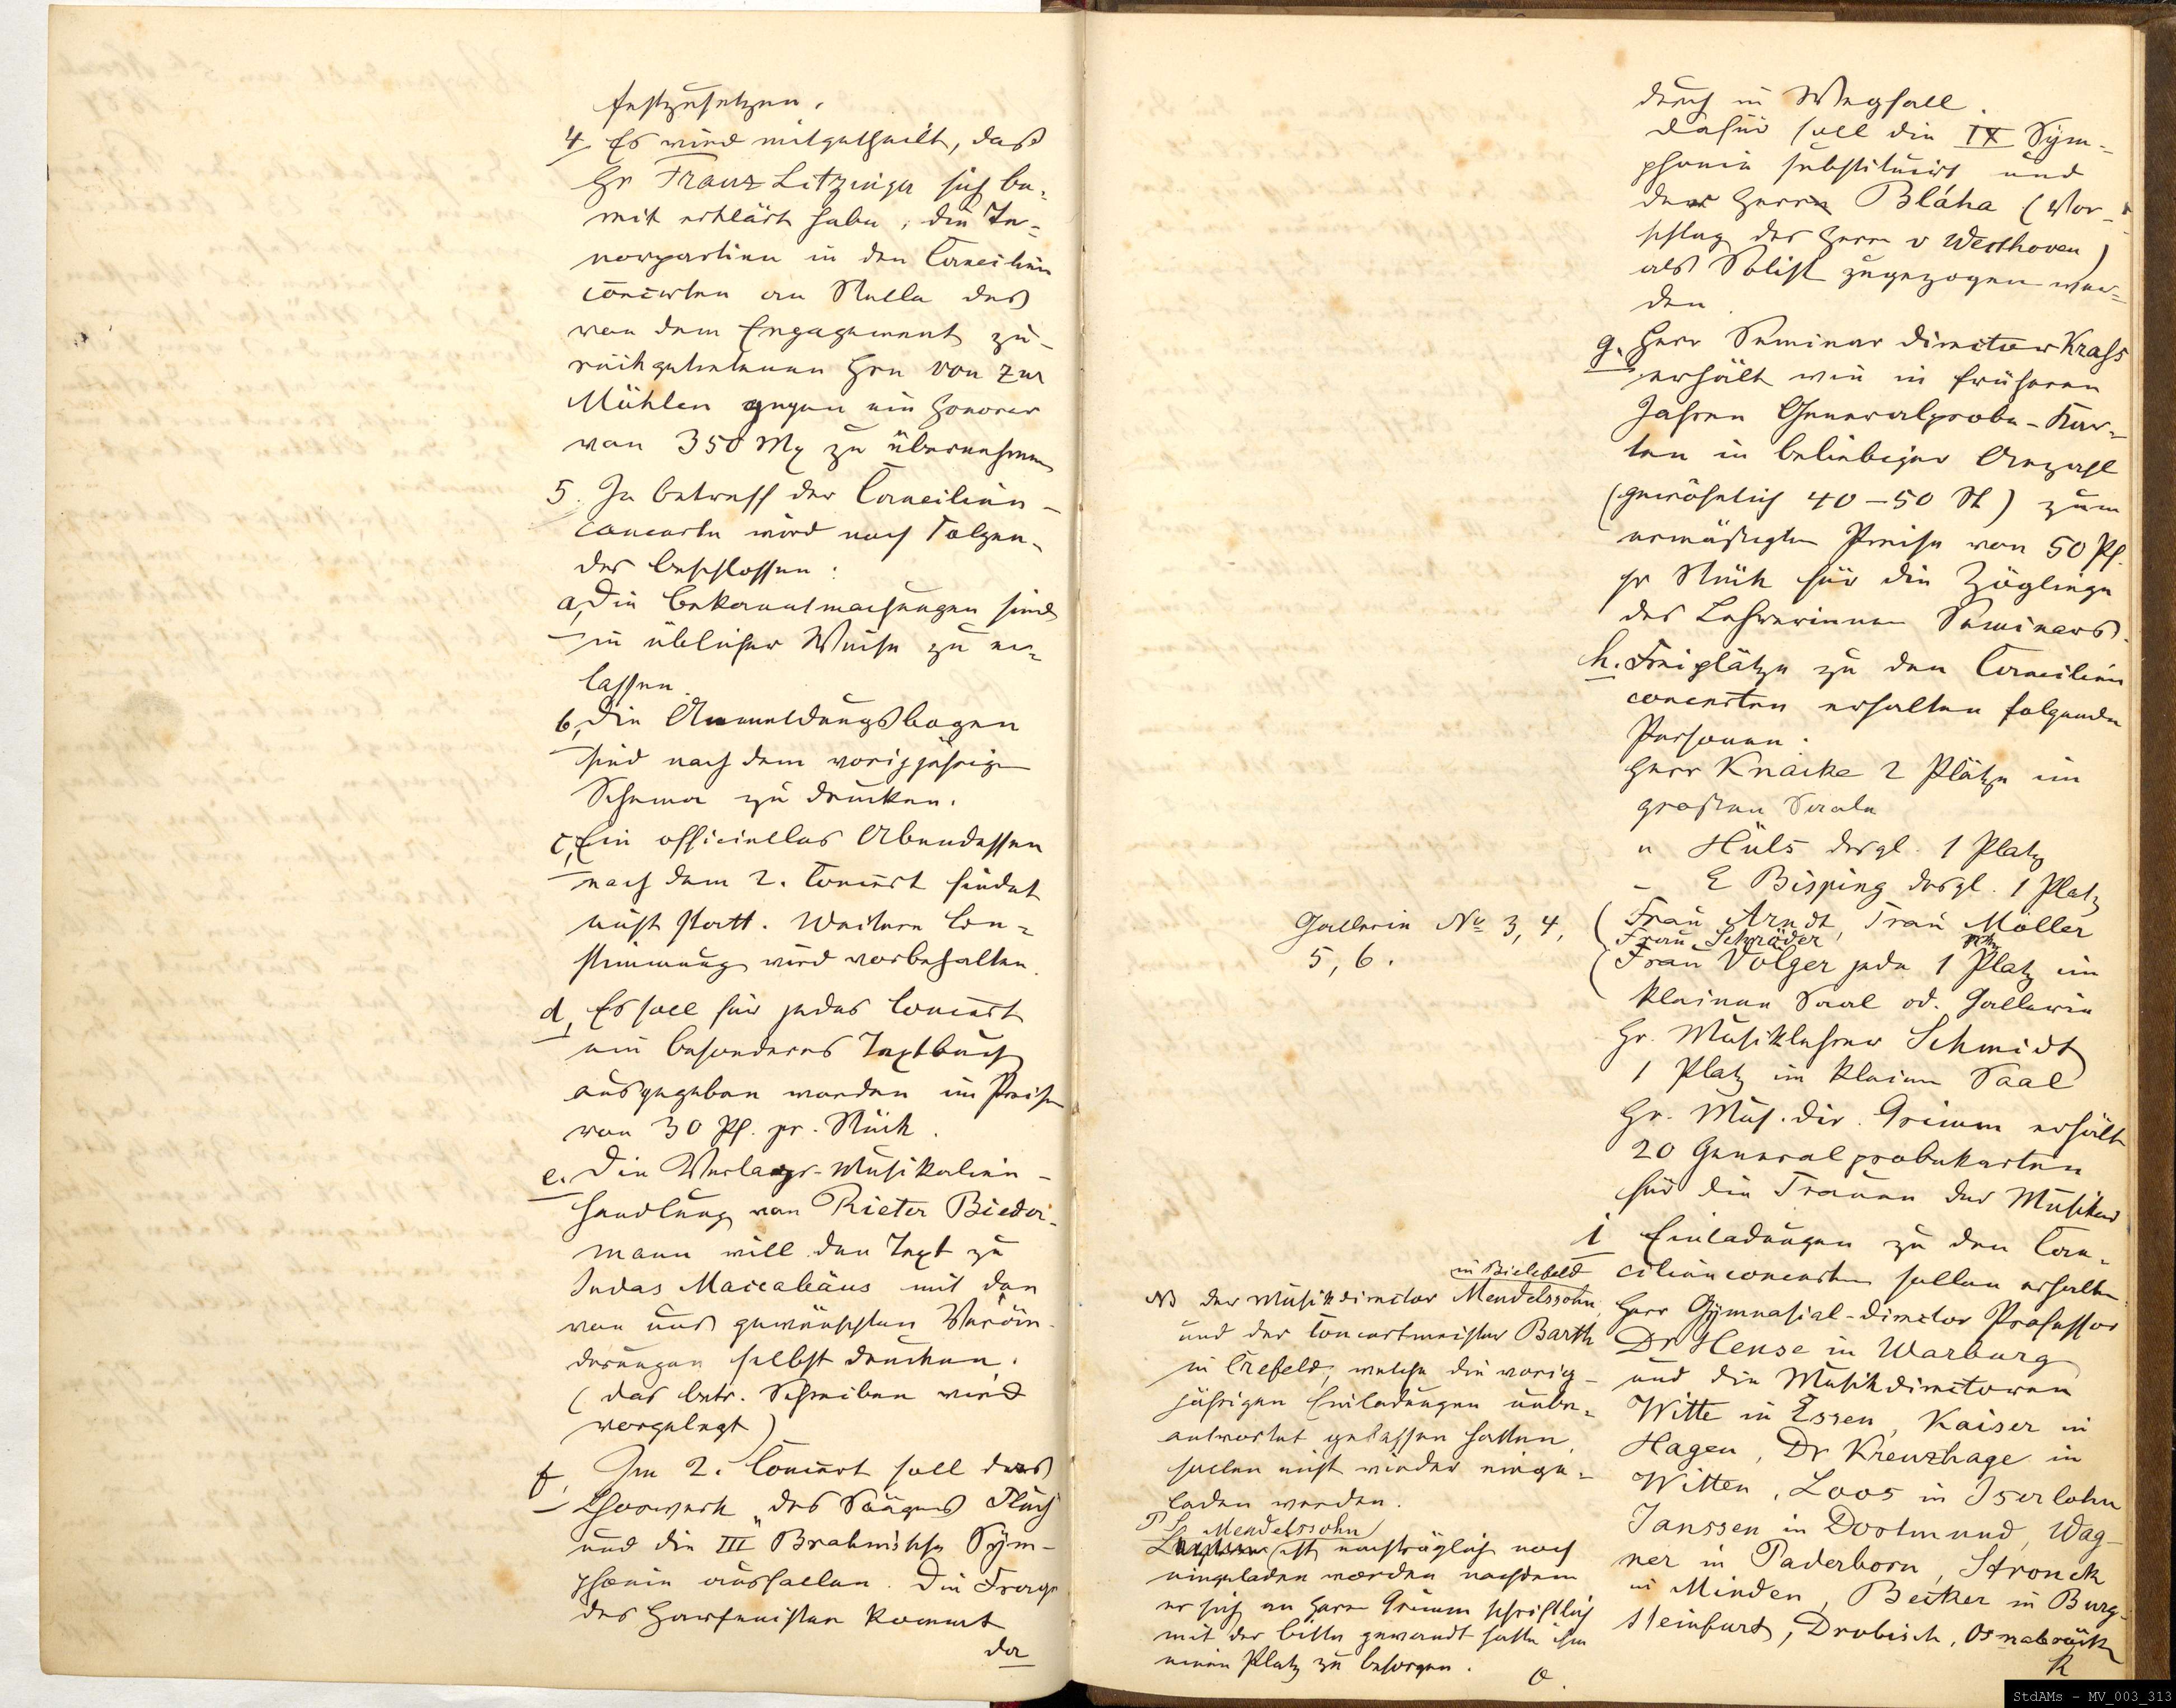 festzusetzen.
4. Es wird mitgetheilt, daß
Hr Franz Litzinger sich be-
reit erklärt habe, die Te-
norpartien in den Caecilien
concerten an Stelle des
von dem Engagement zu-
rückgetretenen Hrn von Zur
Mühlen gegen ein Honorar
von 350 Mk zu übernehmen
5. In betreff der Caecilien-
concerte wird noch Folgen-
des beschlossen:
a, Die Bekanntmachungen sind
in üblicher Weise zu er-
lassen.
b, Die Anmeldungsbogen
sind nach dem vorigjährigen
Schema zu drucken.
c, Ein officielles Abendessen
nach dem 2. Concert findet
nicht statt. Weitere Be-
stimmung wird vorbehalten.
d, Es soll für jedes Concert
ein besonderes Textbuch
ausgegeben werden im Preise
von 30 Pf. pr. Stück.
e. Die Verlags-Musikalien-
handlung von Rieter Bieder-
mann will den Text zu
Judas Maccabäus mit den
von uns gewünschten Verän-
derungen selbst drucken.
(das betr. Schreiben wird
vorgelegt)
f, Im 2. Concert soll das
Chorwerk „des Sängers Fluch
und die III Brahmssche Sym-
phonie ausfallen. Die Frage
des Harfenisten kommt
da
durch in Wegfall.
Dafür soll die IX Sym-
phonie substituirt und
der Herr Bláha (Vor-
schlag des Herrn v Westhoven)
als Solist zugezogen wer-
den.
g. Herr Seminar director Krass
erhält wie in früheren
Jahren Generalprobe-Kar-
ten in beliebiger Anzahl
(gewöhnlich 40–50 St) zum
ermäßigten Preise von 50 Pf.
pr Stück für die Zöglinge
des Lehrerinnen Seminars.
h. Freiplätze zu den Caecilien
concerten erhalten folgende
Personen:
Herr Knacke 2 Plätze im
großen Saale
" Hüls desgl. 1 Platz
– E Bisping desgl. 1 Platz
Gallerie No 3, 4,
5, 6.
(Frau Arndt, Frau Möller
Frau Schräder,
(Frau Volger jede 1 Platz im
kleinen Saal od. Gallerie
Hr. Musiklehrer Schmidt
1 Platz im kleinen Saal
Hr. Mus. dir. Grimm erhält
20 Generalprobekarten
für die Frauen der Musiker
i Einladungen zu den Cae-
cilienconcerten sollen erhalten
Herr Gymnasial-Director Professor
Dr Hense in Warburg
und die Musikdirectoren
Witte in Essen, Kaiser in
Hagen, Dr Kreuzhage in
Witten, Loos in Iserlohn
Janssen in Dortmund, Wag-
ner in Paderborn, Stronck
in Minden, Becker in Burg-
steinfurt, Drobisch, Osnabrück
R
in Bielefeld
NB der Musikdirector Mendelssohn
und der Concertmeister Barth
in Crefeld, welche die vorig-
jährigen Einladungen unbe-
antwortet gelassen hatten,
sollen nicht wieder einge-
laden werden.
PS Mendelssohn
ist nachträglich noch
eingeladen worden nachdem
er sich an Herrn Grimm schriftlich
mit der Bitte gewandt hatte ihm
einen Platz zu besorgen.
StdAMs - MV_003_313